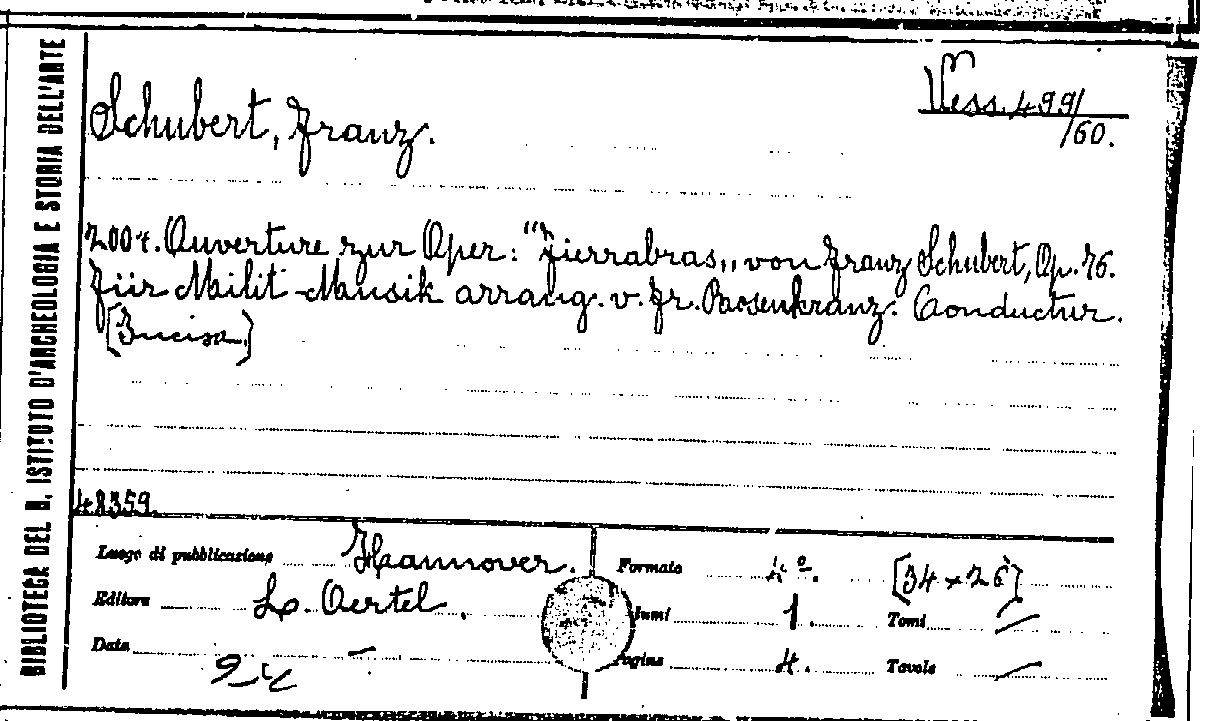 BIBLIOTECA DEL R. ISTITUTO D'ARCHEOLOGIA E STORIA DELL'ARTE
Vess. 499/
/60.
Schubert, Franz.
Ouverture zur Oper: "Fierrabras„ von Franz Schubert, Op. 76.
Für Milit-Musik arrang. v. Fr. Rosenkranz. Conductur.
[Incisa.]
48359.
Luogo di pubblicazione Hannover.
Editore L. Oertel.
Data -
Formato 4º. [34 × 26]
lumi 1. Tomi /
Pagine 4. Tavole /